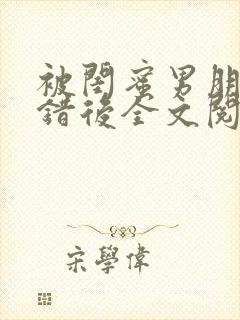 被閨蜜男朋
錯後全文閱
宋學偉